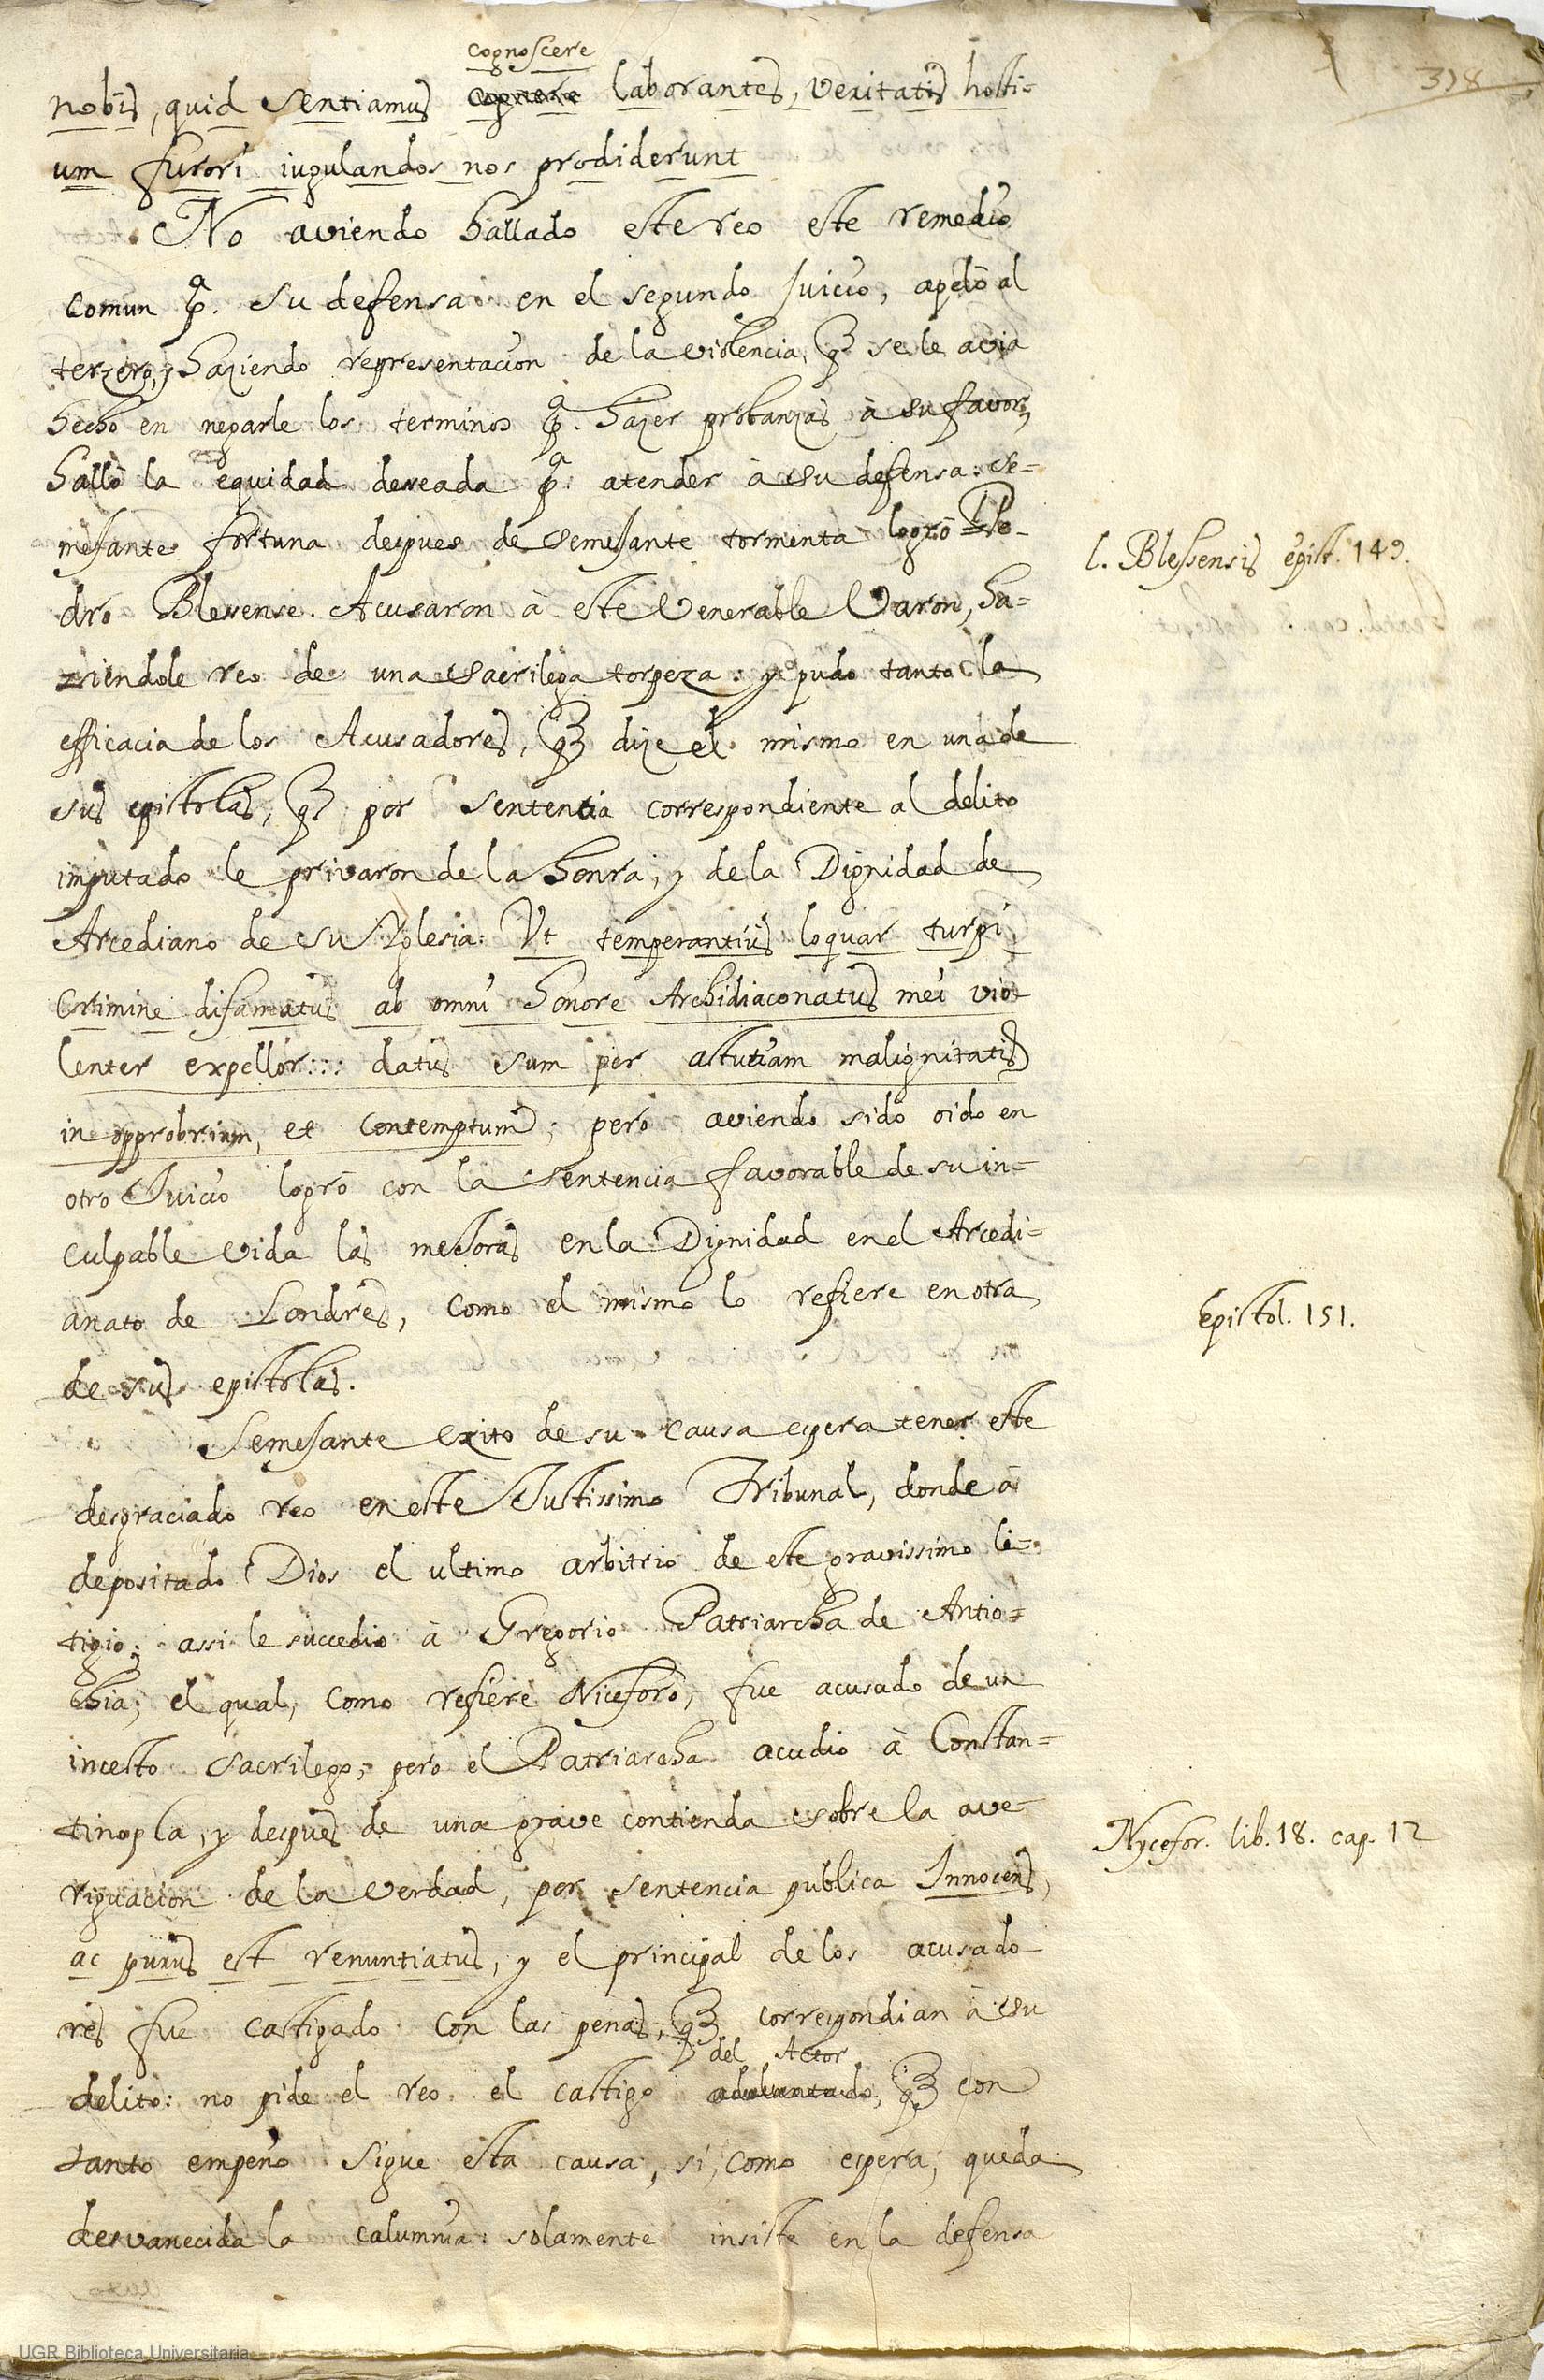 318
cognoscere
nobis, quid sentiamus laborantes, veritatis hosti-
um furori iugulandos nos prodiderunt
No aviendo hallado este reo este remedio
comun pª. su defensa en el segundo juicio, apelò al
terzero, y haziendo representacion de la violencia, q se le avia
hecho en negarle los terminos pª. hazer probanzas à su favor,
hallò la equidad deseada pª. atender à su defensa: se-
mejante fortuna despues de semejante tormenta logrò Pe-
dro Blesense. Acusaron à este Venerable Varon, ha-
ziendole reo de una sacrilega torpeza: y pudo tanto la
efficacia de los Acusadores, q dize el mismo en una de
sus epistolas, q por sententia correspondiente al delito
imputado le privaron de la honra, y de la Dignidad de
Arcediano de su Yglesia: Vt temperantius loquar turpi
crimine difamatus ab omni honore Archidiaconatus mei vio-
lenter expellor:::: datus sum per astutiam malignitatis
in opprobrium, et contemptum; pero aviendo sido oido en
otro Juicio logrò con la sentencia favorable de su in-
culpable vida las mejoras en la Dignidad en el Arcedi-
anato de Londres, como el mismo lo refiere en otra
de sus epistolas.
Semejante exito de su causa espera tener este
desgraciado reo en este Justissimo Tribunal, donde à
depositado Dios el ultimo arbitrio de este gravissimo li-
tigio; assi le succedio à Gregorio Patriarcha de Antio-
chia; el qual, como refiere Niceforo, fue acusado de un
incesto sacrilego; pero el Patriarcha acudio à Constan-
tinopla, y despues de una grave contienda sobre la ave-
riguacion de la verdad, por sentencia publica Innocens,
ac purus est renuntiatus, y el principal de los acusado-
res fue castigado con las penas, q correspondian à su
del Actor
delito: no pide el reo el castigo adelantado, q con
tanto empeño sigue esta causa, si, como espera, queda
desvanecida la calumnia: solamente insiste en la defensa
l. Blessensis epist. 149.
Epistol. 151.
Nycefor. lib. 18. cap. 12
UGR Biblioteca Universitaria